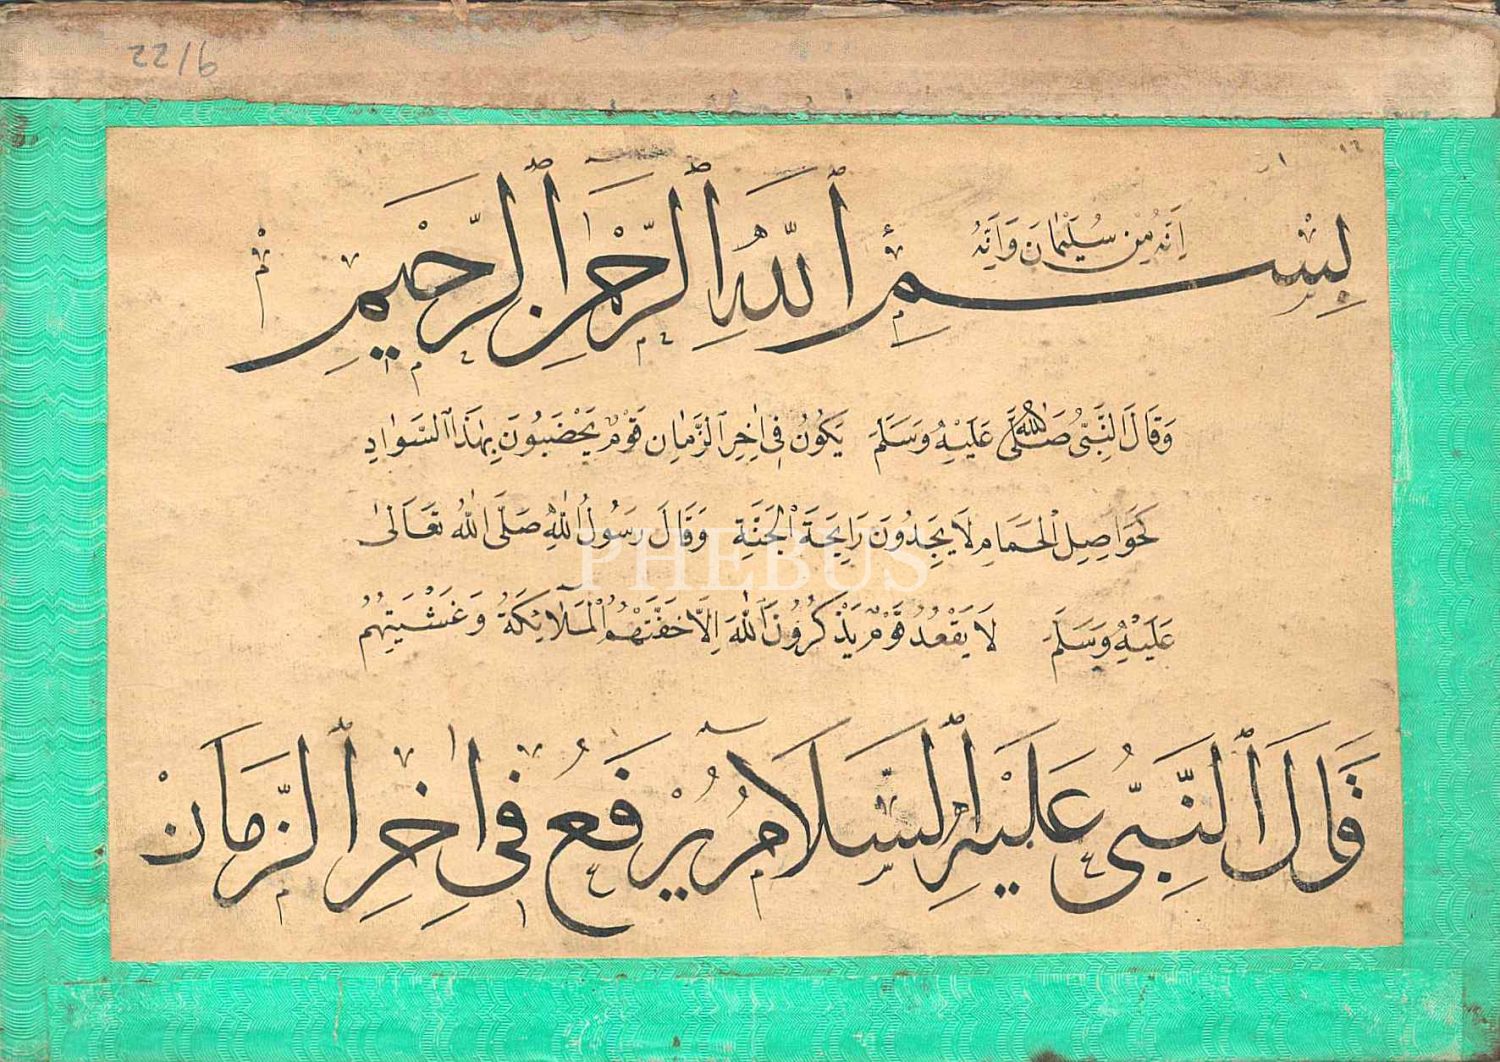 22/6
اِنَّهُ مِنْ سُلَيْمَانَ وَاِنَّهُ
بِسْمِ اللّٰهِ الرَّحْمٰنِ الرَّحِيمِ
وَقَالَ النَّبِىُّ صَلَّى اللّٰهُ عَلَيْهِ وَسَلَّمَ يَكُونُ فِى اٰخِرِ الزَّمَانِ قَوْمٌ يَخْضَبُونَ بِهٰذَا السَّوَادِ
كَحَوَاصِلِ الْحَمَامِ لَا يَجِدُونَ رَايِحَةَ الْجَنَّةِ وَقَالَ رَسُولُ اللّٰهِ صَلَّى اللّٰهُ تَعَالٰى
PHEBUS
عَلَيْهِ وَسَلَّمَ لَا يَقْعُدُ قَوْمٌ يَذْكُرُونَ اللّٰهَ اِلَّا حَفَّتْهُمُ الْمَلَآئِكَةُ وَغَشْيَتْهُمُ
قَالَ النَّبِىُّ عَلَيْهِ السَّلَامُ يُرْفَعُ فِى اٰخِرِ الزَّمَانْ